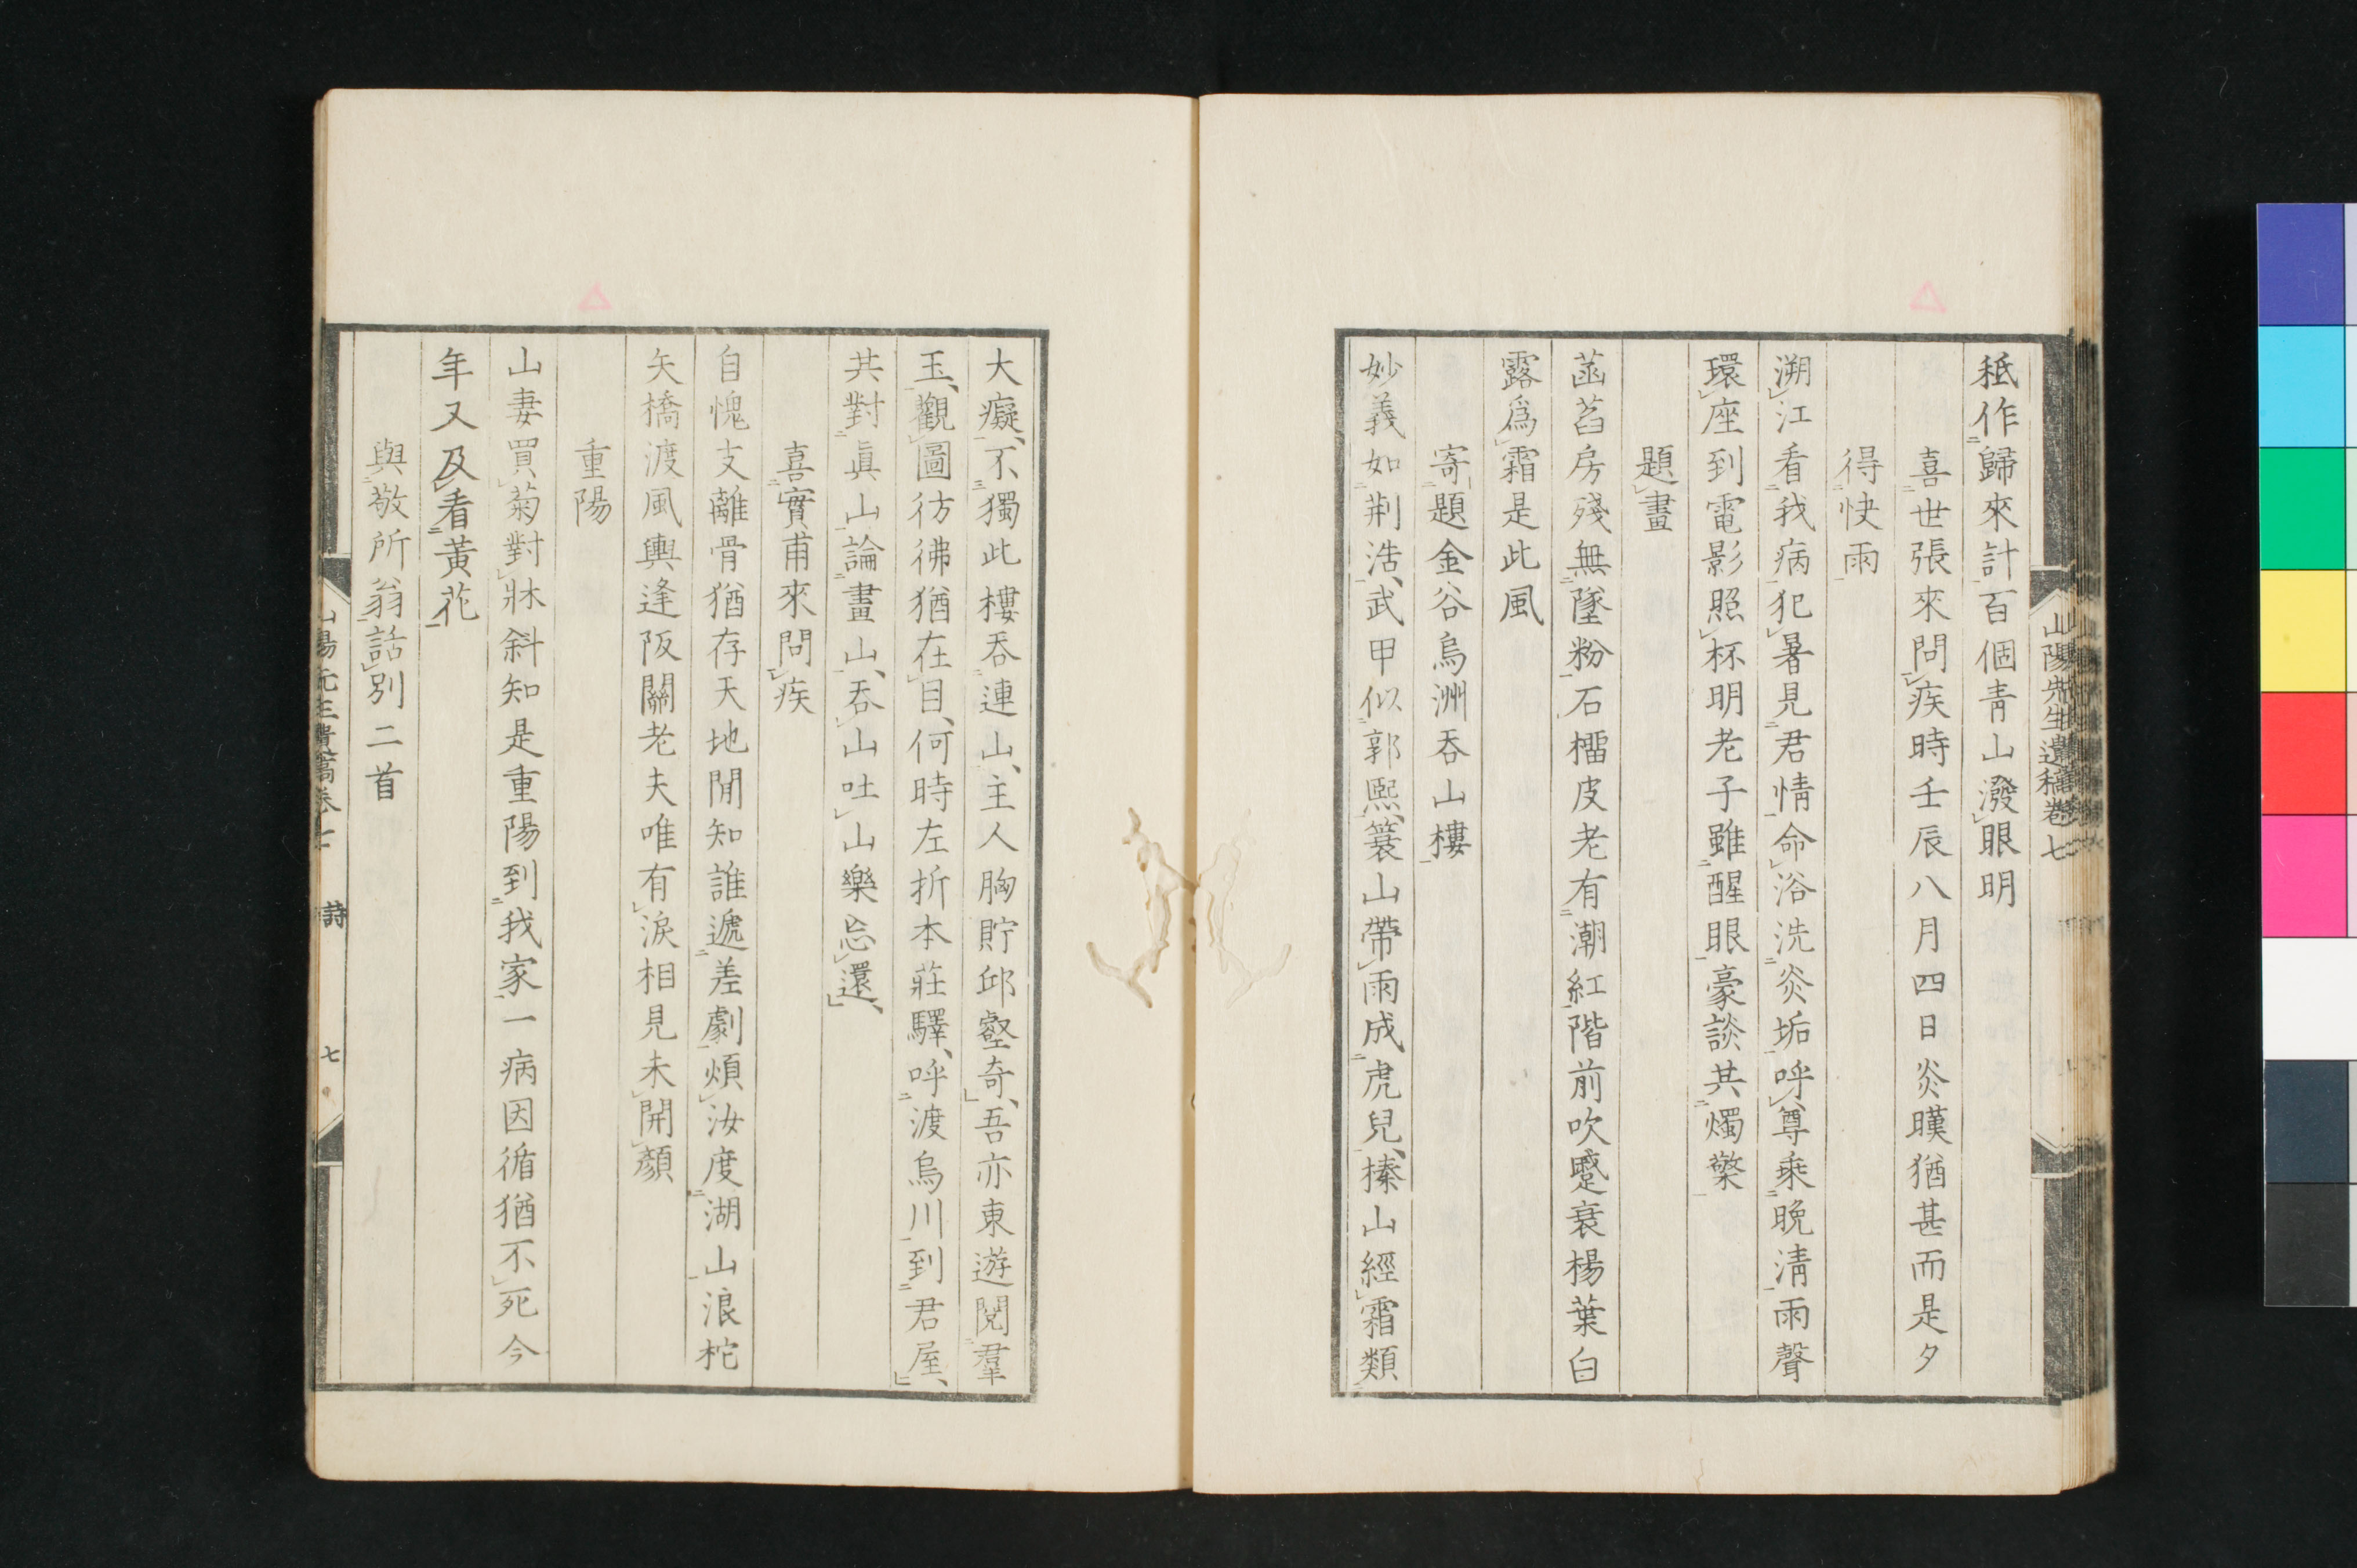 山陽先生遺稿卷七
秪作歸來計百個青山潑眼明
喜世張來問疾時壬辰八月四日炎暵猶甚而是夕
得快雨
溯江看我病犯暑見君情命浴洗炎垢呼尊乘晩清雨聲
環座到電影照杯明老子雖醒眼豪談共燭檠
題畫
菡萏房殘無墜粉石橊皮老有潮紅階前吹蹙衰楊葉白
露爲霜是此風
寄題金谷烏洲吞山樓
妙義如荆浩武甲似郭熙簑山帶雨成虎兒搸山經霜類
大癡不獨此樓吞連山主人胸貯邱壑奇吾亦東遊閱羣
玉觀圖彷彿猶在目何時左折本莊驛呼渡烏川到君屋
共對眞山論畫山吞山吐山樂忘還
喜實甫來問疾
自愧支離骨猶存天地閒知誰遞差劇煩汝度湖山浪柁
矢橋渡風輿逢阪關老夫唯有淚相見未開顏
重陽
山妻買菊對牀斜知是重陽到我家一病因循猶不死今
年又及看黃花
與敬所翁話別二首
山陽先生遺稿卷七 詩 七